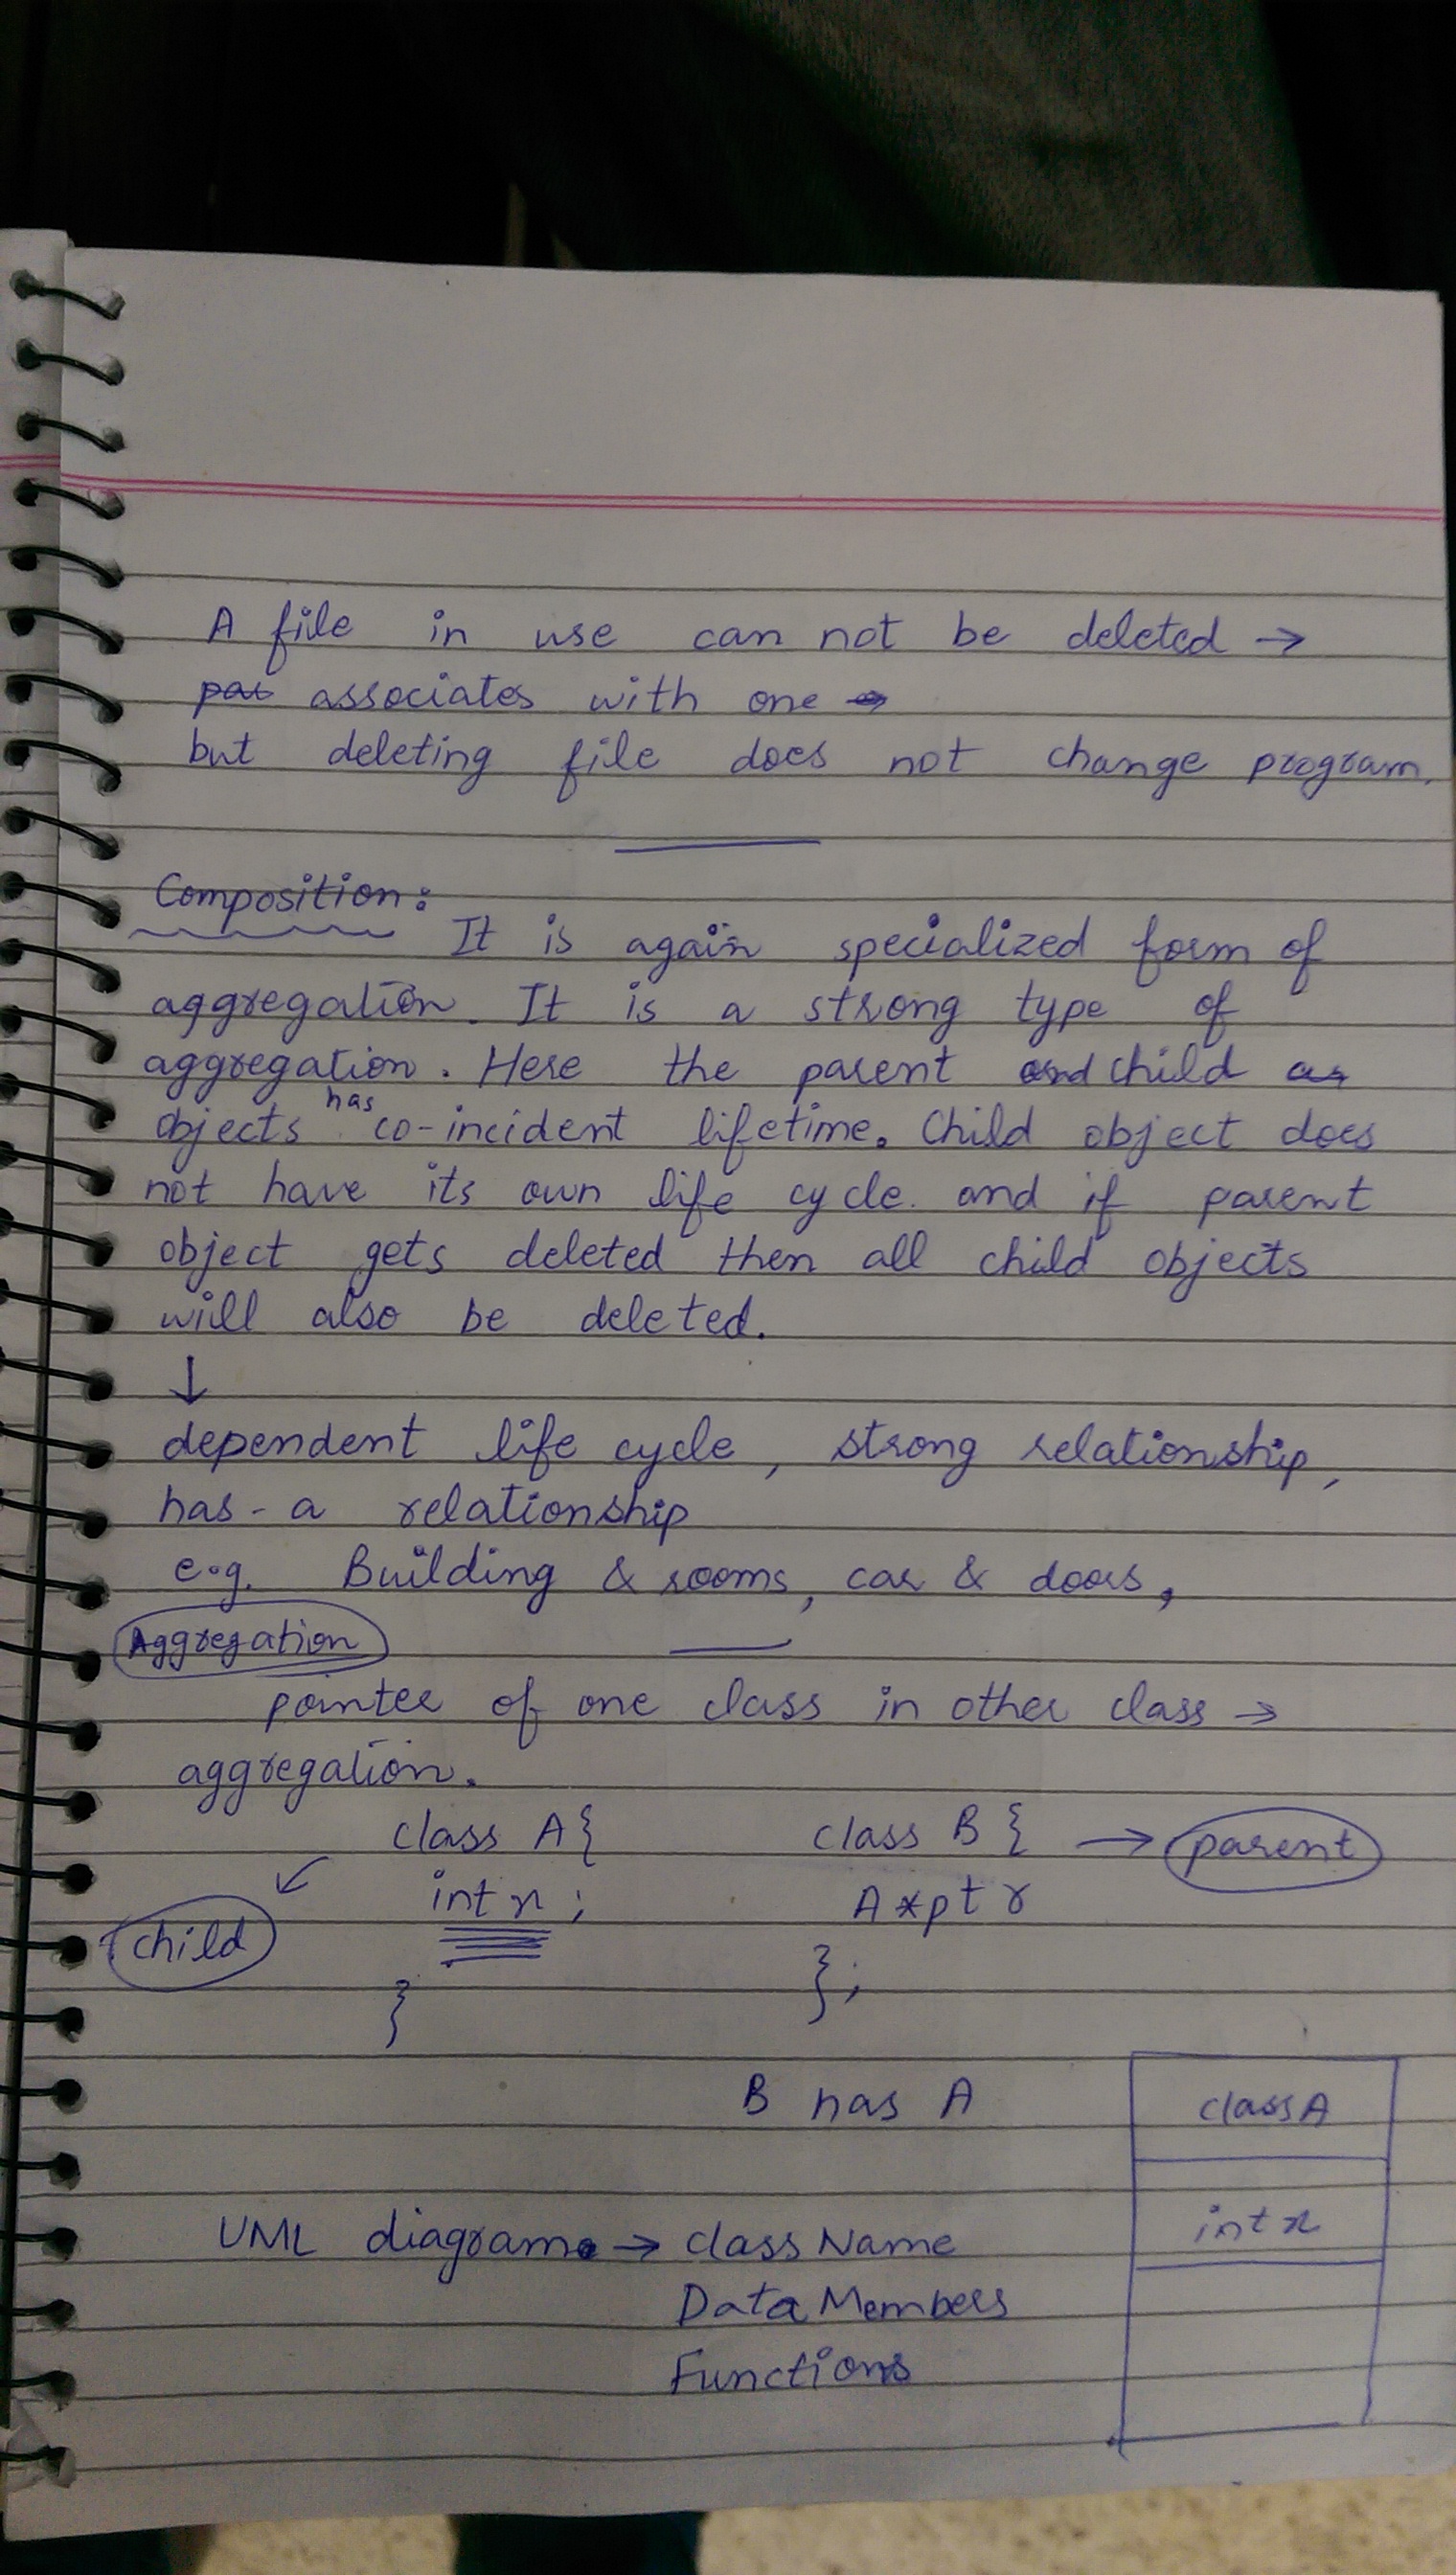 A file in use can not be deleted →
associates with one →
but deleting file does not change program.
Composition:
It is again specialized form of
aggregation. It is a strong type of
aggregation. Here the parent and child
objects has co-incident lifetime. Child object does
not have its own life cycle. and if parent
object gets deleted then all child objects
will also be deleted.
↓
dependent life cycle, strong relationship,
has-a relationship
e.g. Building & rooms, car & doors,
Aggregation
pointer of one class in other class →
aggregation.
class A{ class B{ → parent
int x; A *ptr
child
} };
B has A
class A
int x
UML diagram → class Name
Data Members
Functions